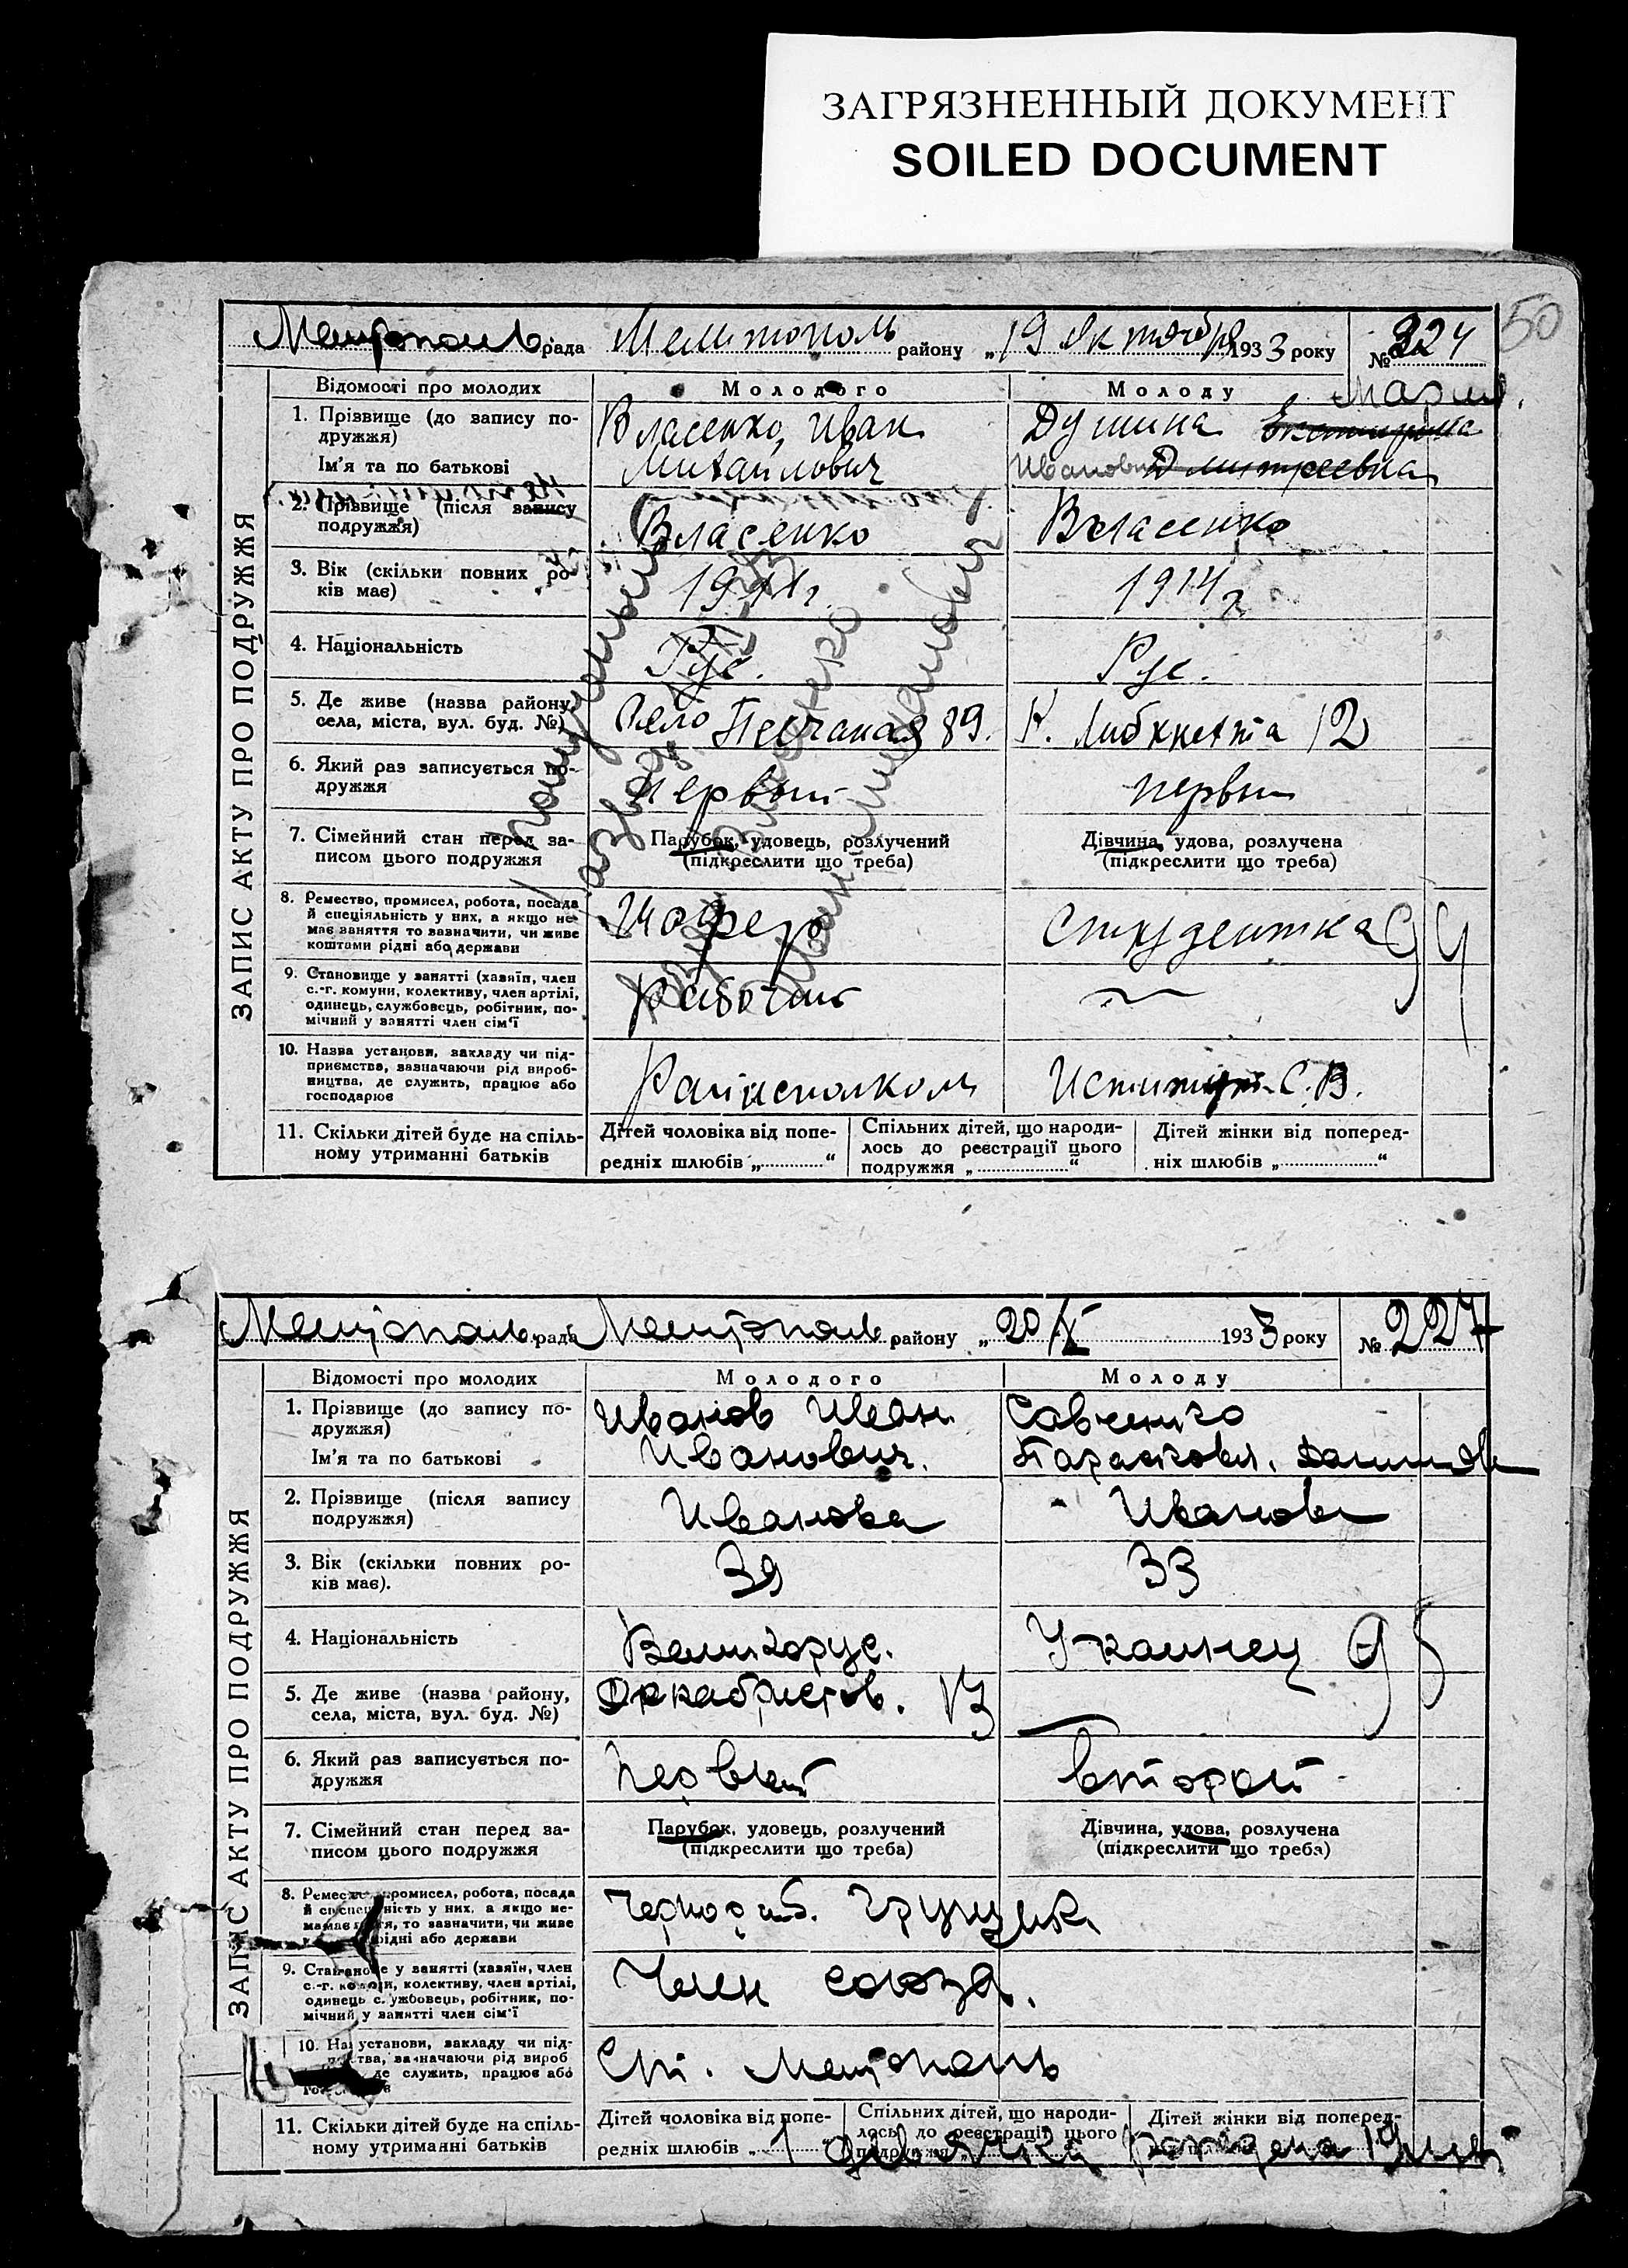 ЗАГРЯЗНЕННЫЙ ДОКУМЕНТ
SOILED DOCUMENT
50
Мелітополь рада Мелитополь району „19 Октября 1933 року № 224
Відомості про молодих Молодого Молоду
Мария
1. Прізвище (до запису по-
дружжя)
Власенко, Иван Душина Екатерина
Ім'я та по батькові
Михайлович Ивановна Дмитреевна
2. Прізвище (після запису
подружжя)
Власенко Власенко
3. Вік (скільки повних ро-
ків має)
1911 г. 1914 г
4. Національність
Рус. Рус.
5. Де живе (назва району,
села, міста, вул. буд. №)
Песчаная 89. К. Либкнехта 12
6. Який раз записується по-
дружжя
Первый первый
7. Сімейний стан перед за-
писом цього подружжя
Парубок, удовець, розлучений
(підкреслити що треба)
Дівчина, удова, розлучена
(підкреслити що треба)
8. Ремество, промисел, робота, посада
й спеціяльність у них, а якщо не-
має заняття то зазначити, чи живе
коштами рідні або держави
Шофер Студентка
9. Становище у занятті (хазяїн, член
с.-г. комуни, колективу, член артілі,
одинець, службовець, робітник, по-
мічний у занятті член сім'ї
рабочий
10. Назва установи, закладу чи під-
приємства, зазначаючи рід вироб-
ництва, де служить, працює або
господарює
Райисполком Иститут С.В.
11. Скільки дітей буде на спіль-
ному утриманні батьків
Дітей чоловіка від попе-
редніх шлюбів „ “
Спільних дітей, що народи-
лось до реєстрації цього
подружжя „ “
Дітей жінки від поперед-
ніх шлюбів „ “
ЗАПИС АКТУ ПРО ПОДРУЖЖЯ
Мелітополь рада Мелітополь району „20/X 1933 року № 227
Відомості про молодих Молодого Молоду
1. Прізвище (до запису по-
дружжя)
Иванов Иван Савченко
Ім'я та по батькові
Иванович. Параскова.
2. Прізвище (після запису
подружжя)
Иванова Иванова
3. Вік (скільки повних ро-
ків має).
39 33
4. Національність
Великорус.
5. Де живе (назва району,
села, міста, вул. буд. №)
Декабристов. 13
6. Який раз записується по-
дружжя
Первый второй
7. Сімейний стан перед за-
писом цього подружжя
Парубок, удовець, розлучений
(підкреслити що треба)
Дівчина, удова, розлучена
(підкреслити що треба)
8. промисел, робота, посада
у них, а якщо не-
то зазначити, чи живе
рідні або держави
Чернораб. Грузчик
9. у занятті (хазяїн, член
колективу, член артілі,
одинець службовець, робітник, по-
мічний у занятті член сім'ї
Член союза.
10. установи, закладу чи під-
зазначаючи рід вироб
де служить, працює або
Ст. Мелітополь
11. Скільки дітей буде на спіль-
ному утриманні батьків
Дітей чоловіка від попе-
редніх шлюбів „ 1
Спільних дітей, що народи-
лось до реєстрації цього
подружжя
Дітей жінки від поперед-
ЗАПИС АКТУ ПРО ПОДРУЖЖЯ